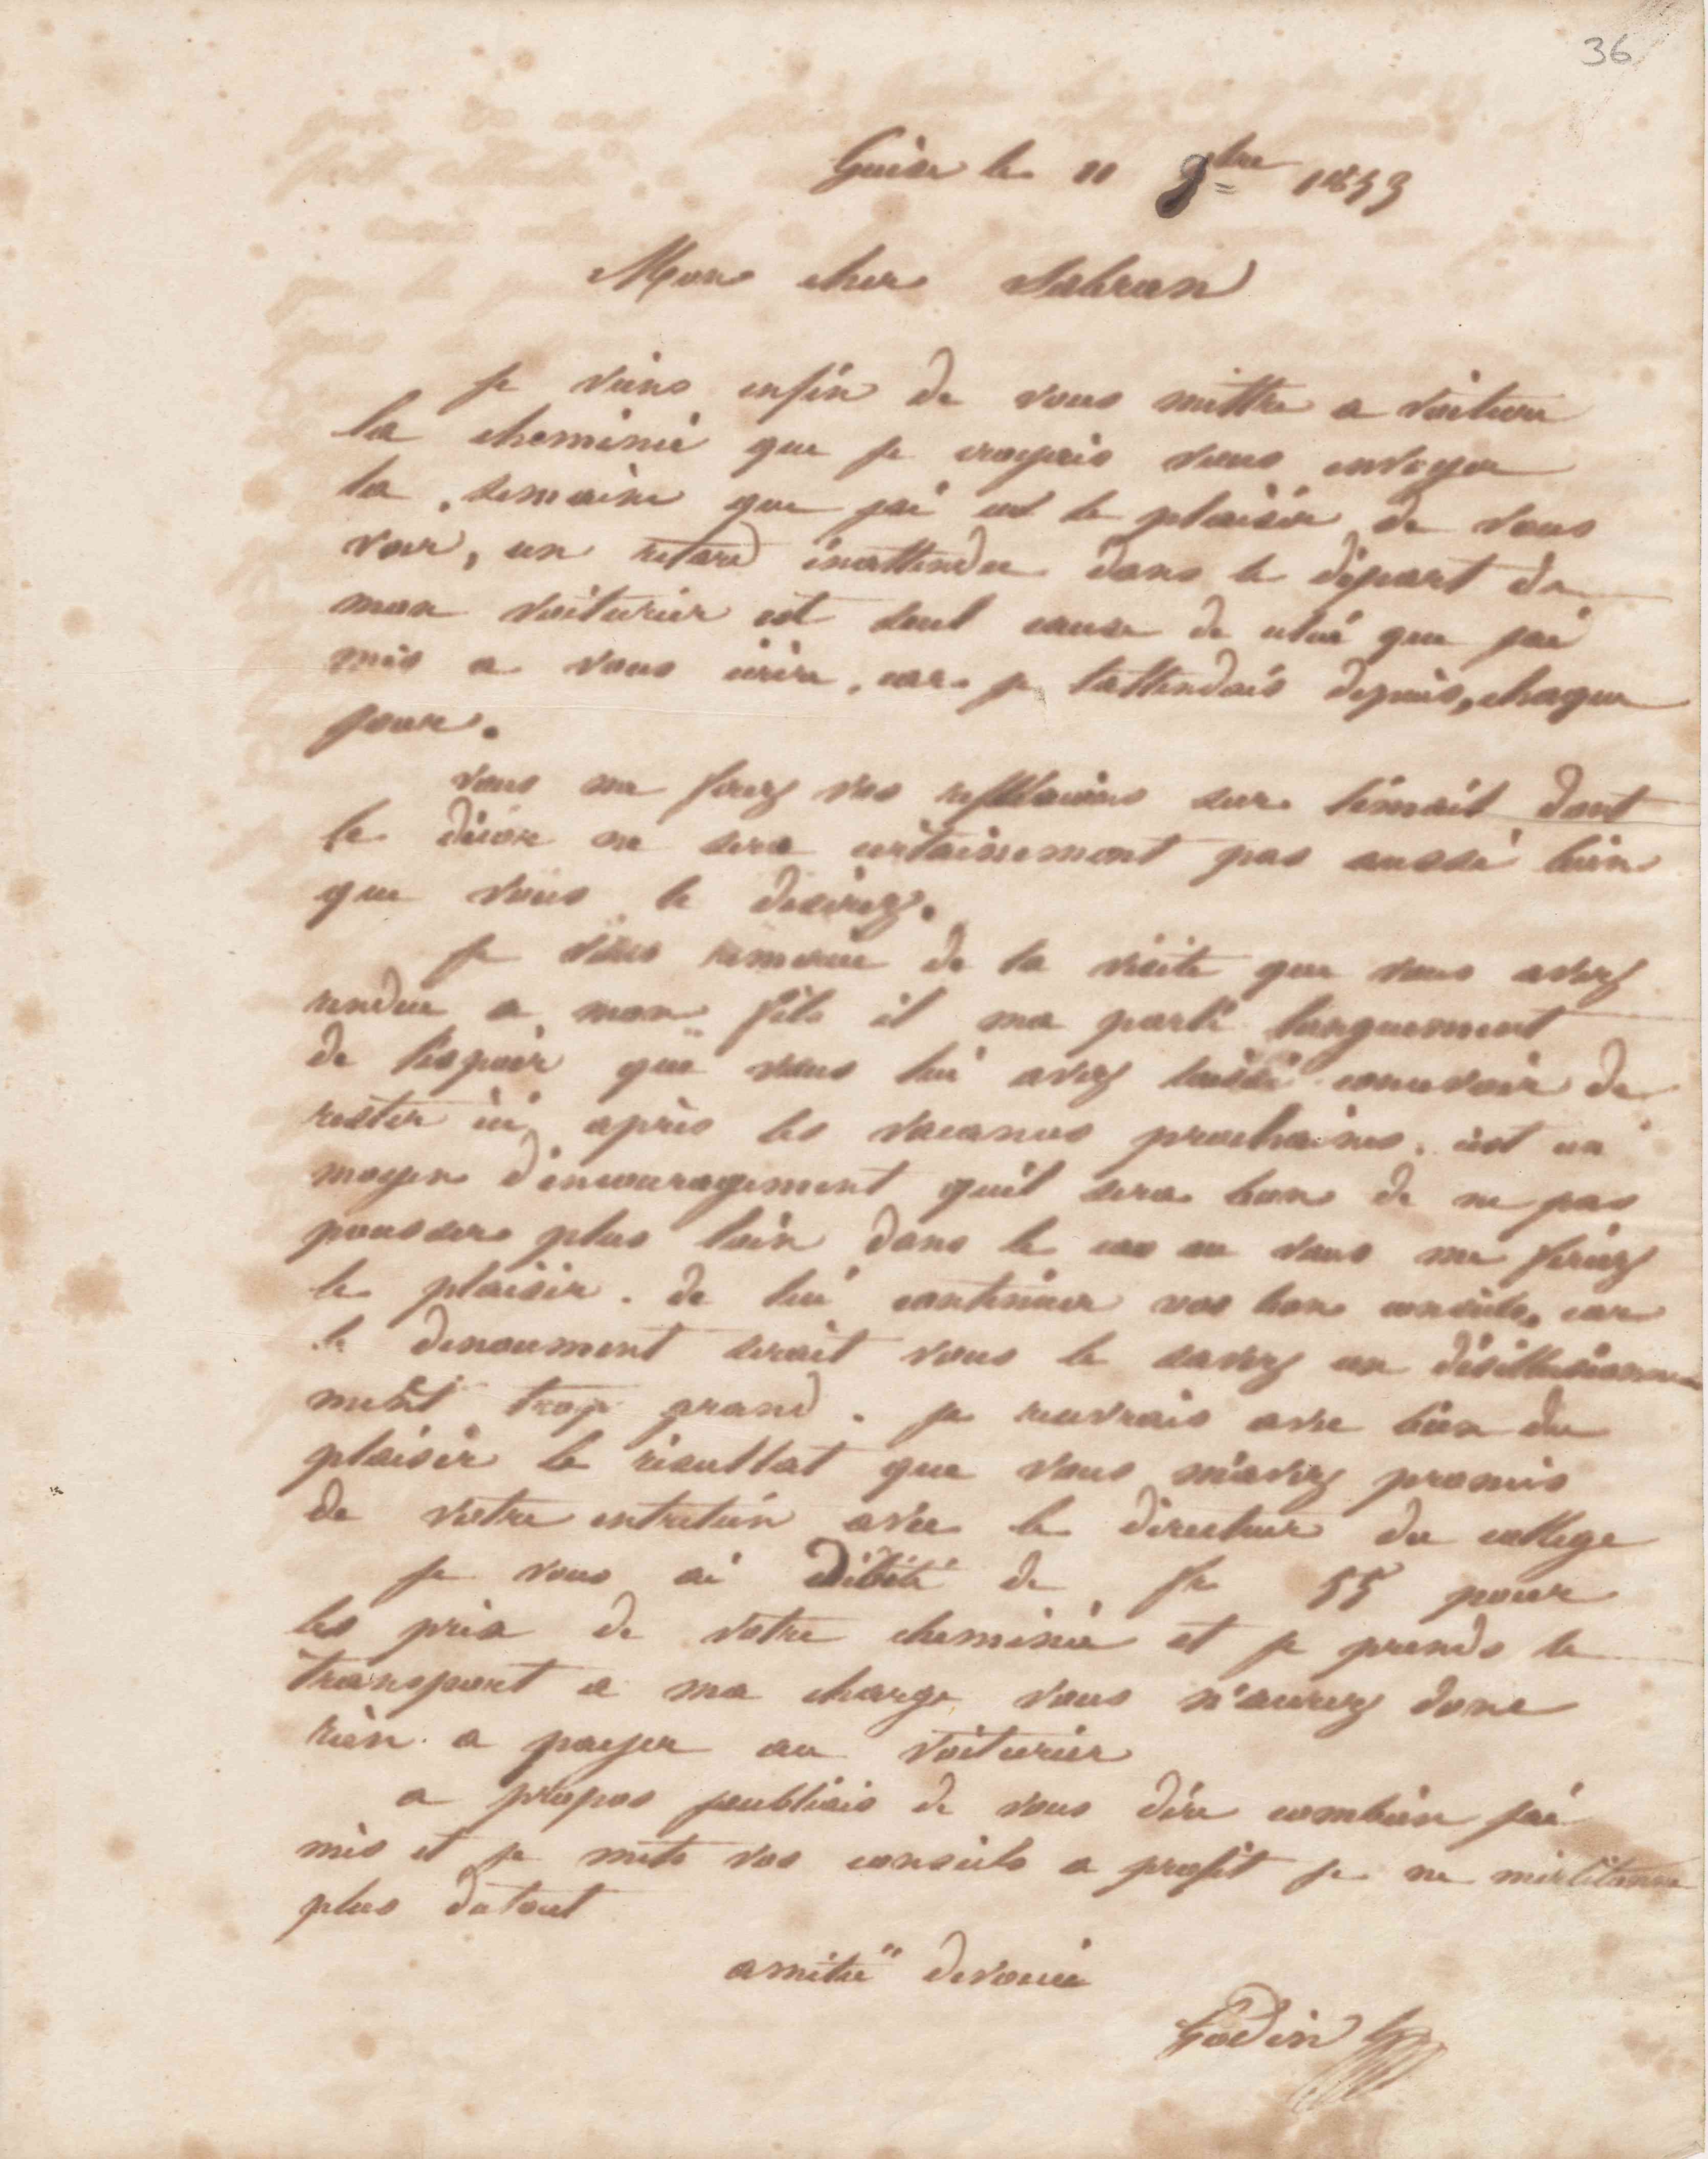 36
Guise le 11 8bre 1853
Mon cher Sabran
je viens enfin de vous mettre a voiture
la cheminée que je croyais vous envoyer
la semaine que jai eu le plaisir de vous
voir, un retard inattendu dans le départ de
mon voiturier est seul cause de celui que jai
mis a vous écrire, car je lattendais depuis, chaque
jour.
vous me ferez vos reflexions sur lémail dont
le décor ne sera certainement pas aussi bien
que vous le desirez.
je vous remercie de la visite que vous avez
rendue a mon fils il ma parlé longuement
de lespoir que vous lui avez laissé concevoir de
rester ici après les vacances prochaines. cest un
moyen d'encouragement quil sera bon de ne pas
pousser plus loin dans le cas ou vous me feriez
le plaisir de lui continuer vos bons conseils, car
le denoument serait vous le savez un désillusionne
ment trop grand. je recevrais avec bien du
plaisir le résultat que vous m'avez promis
de votre entretien avec le directeur du collège
je vous ai débité de fr 55 pour
les prix de votre cheminée et je prends le
transport a ma charge vous n'aurez donc
rien a payer au voiturier
a propos joubliais de vous dire combien jai
mis et je mets vos conseils a profit je ne
plus du tout
amitié devouée
Godin